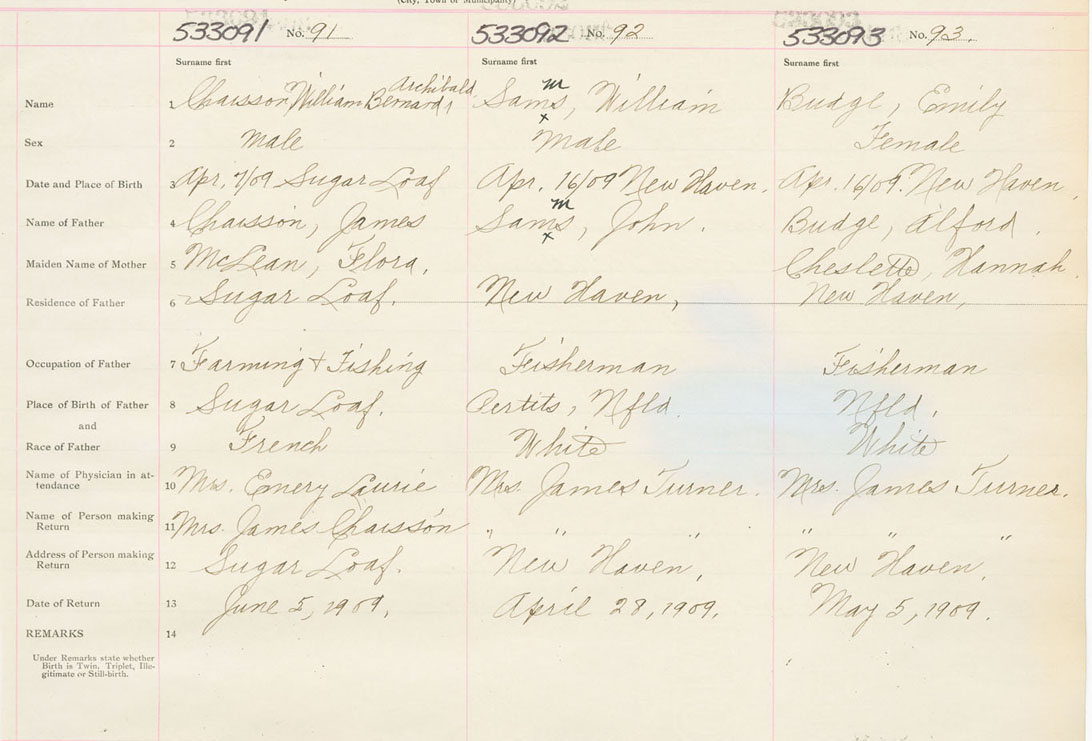 (City, Town or Municipality)
533091 No. 91 533092 No. 92 533093 No. 93.
Surname first Surname first Surname first
Archibald m
Name 1 Chaisson, William Bernard, Sams, William Budge, Emily
x
Sex 2 Male Male Female
Date and Place of Birth 3 Apr. 7/09 Sugar Loaf Apr. 16/09 New Haven. Apr. 16/09. New Haven
m
Name of Father 4 Chaisson, James Sams, John. Budge, Alford.
x
Maiden Name of Mother 5 McLean, Flora. Cheslette, Hannah.
Residence of Father 6 Sugar Loaf. New Haven, New Haven,
Occupation of Father 7 Farming + Fishing Fisherman Fisherman
Place of Birth of Father 8 Sugar Loaf. Nfld. Nfld.
and
Race of Father 9 French White White
Name of Physician in at-
tendance 10 Mrs. Emery Laurie Mrs. James Turner. Mrs. James Turner.
Name of Person making
Return 11 Mrs. James Chaisson " " " " " "
Address of Person making
Return 12 Sugar Loaf. New Haven, New Haven,
Date of Return 13 June 5, 1909. April 28, 1909. May 5, 1909.
REMARKS 14
Under Remarks state whether
Birth is Twin, Triplet, Ille-
gitimate or Still-birth.